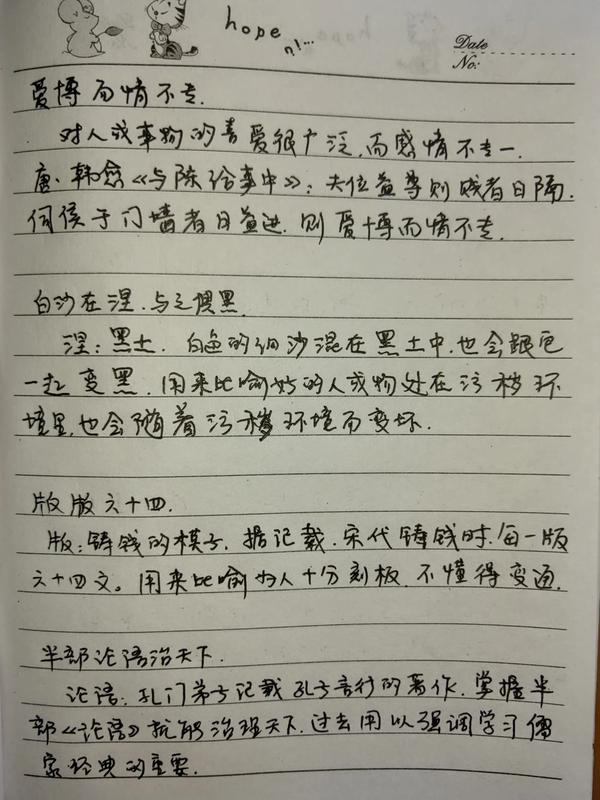 hope
n!...
Date
No:
爱博而情不专.
对人或事物的喜爱很广泛,而感情不专一.
唐·韩愈《与陈给事中》:夫位益尊则贱者日隔.
伺侯于门墙者日益进.则爱博而情不专.
白沙在涅.与之俱黑.
涅:黑土.白色的细沙混在黑土中.也会跟它
一起变黑.用来比喻好的人或物处在污秽环
境里,也会随着污秽环境而变坏.
版版六十四.
版:铸钱的模子.据记载.宋代铸钱时.每一版
六十四文。用来比喻为人十分刻板.不懂得变通.
半部论语治天下.
论语:孔门弟子记载孔子言行的著作.掌握半
部《论语》就能治理天下.过去用以强调学习儒
家经典的重要.